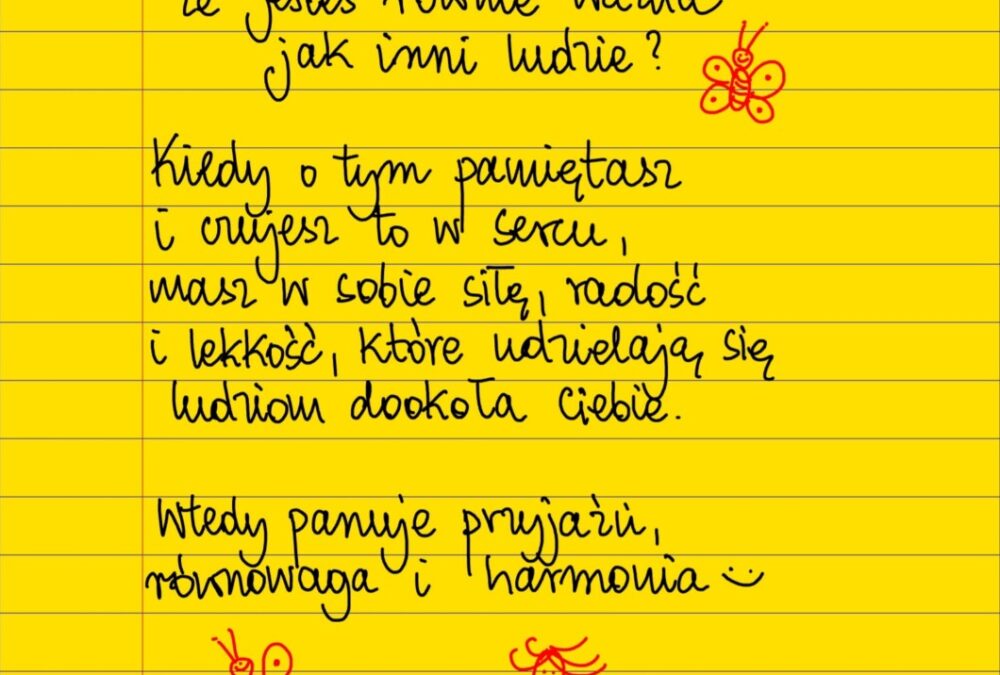 że jesteś równie ważna
jak inni ludzie?
Kiedy o tym pamiętasz
i czujesz to w sercu,
masz w sobie siłę, radość
i lekkość, które udzielają się
ludziom dookoła Ciebie.
Wtedy panuje przyjaźń,
równowaga i harmonia